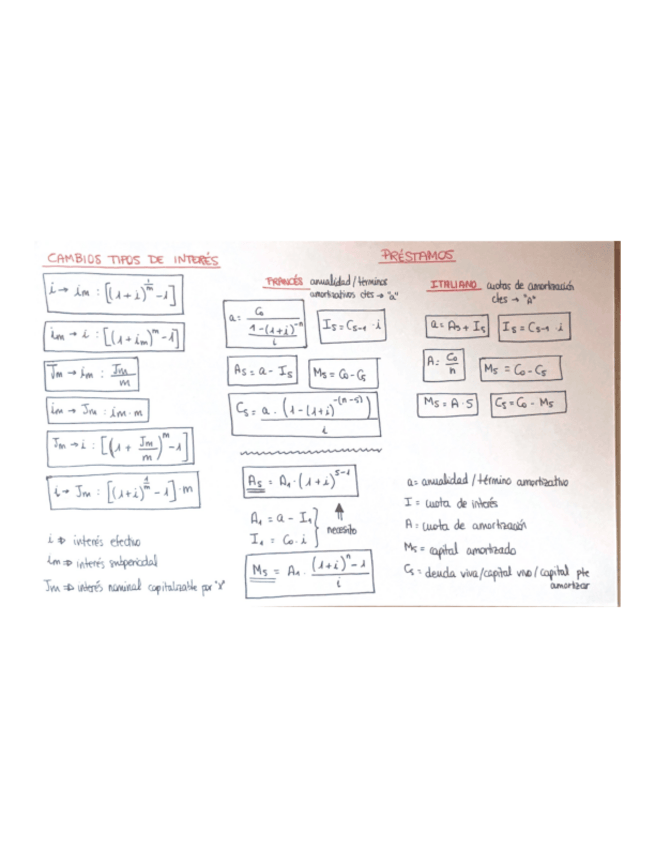 CAMBIOS TIPOS DE INTERÉS
i → im : [(1+i)^(1/m) -1]
im → i : [(1+im)^m -1]
Jm → im : Jm/m
im → Jm : im·m
Jm → i : [(1+ Jm/m)^m -1]
i → Jm : [(1+i)^(1/m) -1]·m
i ⇒ interés efectivo
im ⇒ interés subperiodal
Jm ⇒ interés nominal capitalizable por "x"
PRÉSTAMOS
FRANCÉS anualidad/términos
amortizativos ctes → "a"
a = Co / ((1-(1+i)^-n)/i)
Is = Cs-1 · i
As = a - Is
Ms = Co - Cs
Cs = a · (1-(1+i)^-(n-s)) / i
As = A1 · (1+i)^s-1
A1 = a - I1
I1 = Co · i
necesito
Ms = A1 · ((1+i)^n -1) / i
ITALIANO cuotas de amortización
ctes → "A"
a = As + Is
Is = Cs-1 · i
A = Co/n
Ms = Co - Cs
Ms = A · S
Cs = Co - Ms
a = anualidad / término amortizativo
I = cuota de interés
A = cuota de amortización
Ms = capital amortizado
Cs = deuda viva/capital vivo/capital pte
amortizar